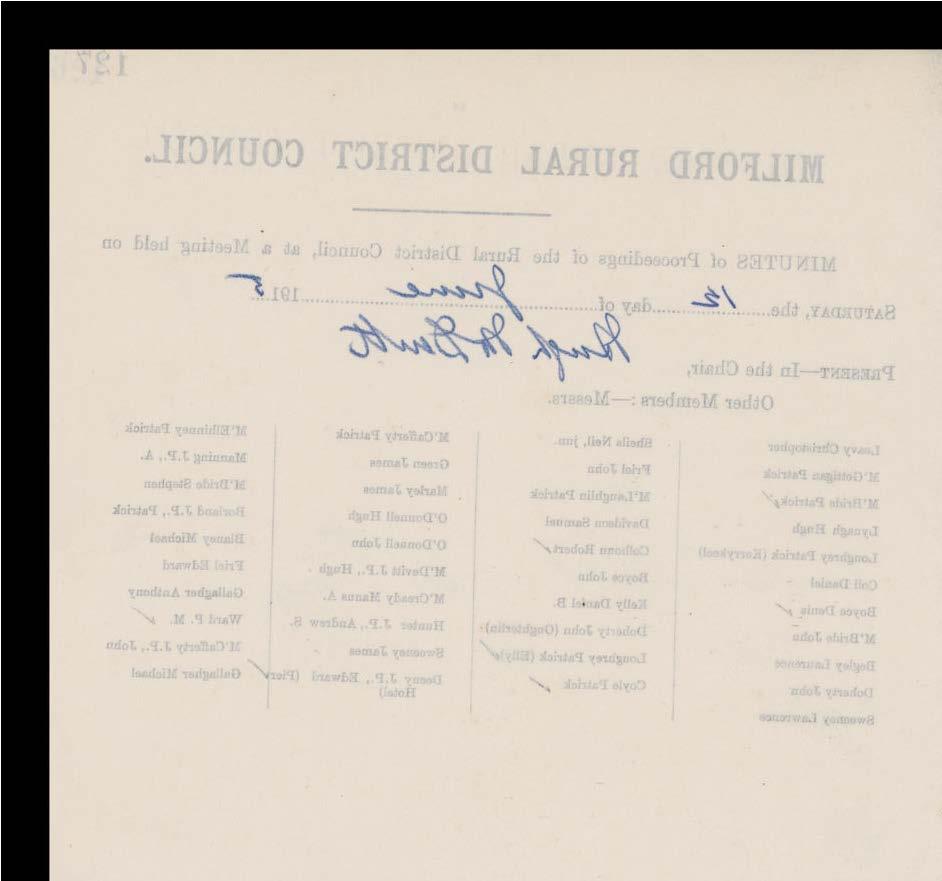 127
MILFORD RURAL DISTRICT COUNCIL.
MINUTES of Proceedings of the Rural District Council, at a Meeting held on
SATURDAY, the 12 day of June 1915
PRESENT—In the Chair, Hugh McDevitt
Other Members:—Messrs.
Leavy Christopher
M'Gettigan Patrick
M'Bride Patrick
Lynagh Hugh
Loughrey Patrick (Kerrykeel)
Coll Daniel
Boyce Denis
M'Bride John
Begley Laurence
Doherty John
Sweeney Lawrence
Sheils Neil, jun.
Friel John
M'Laughlin Patrick
Davidson Samuel
Colhoun Robert
Boyce John
Kelly Daniel B.
Doherty John (Oughterlin)
Loughrey Patrick (Elly)
Coyle Patrick
M'Cafferty Patrick
Green James
Marley James
O'Donnell Hugh
O'Donnell John
M'Devitt J.P., Hugh
M'Cready Manus A.
Hunter J.P., Andrew S.
Sweeney James
Deeny J.P., Edward (Pier
Hotel)
M'Elhinney Patrick
Manning J.P., A.
M'Bride Stephen
Borland J.P., Patrick
Blaney Michael
Friel Edward
Gallagher Anthony
Ward P. M.
M'Cafferty J.P., John
Gallagher Michael